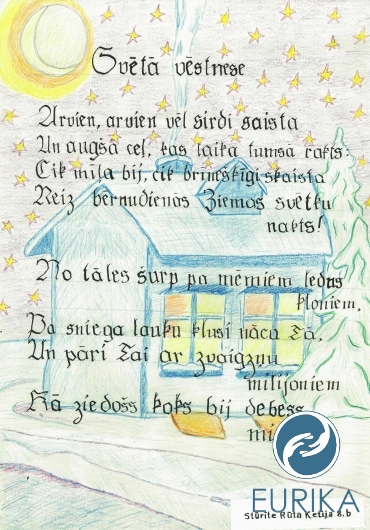 Svētā vēstnese
Arvien, arvien vēl sirdi saista
Un augšā ceļ, kas laika tumsā rakts:
Cik mīļa bij, cik brīnišķīgi skaista
Reiz bērnudienās Ziemas svētku
nakts!
No tāles šurp pa mēmiem ledus
kloniem,
Pa sniega lauku klusi nāca Tā,
Un pāri Tai ar zvaigžņu
miljoniem
Kā ziedošs koks bij debess
EURIKA
Stūrīte Rūta Ketija 8.b